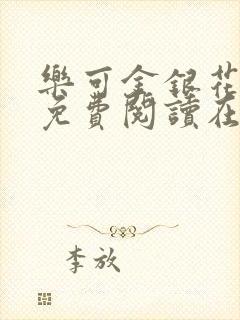 樂可金銀花
免費閱讀在
李放